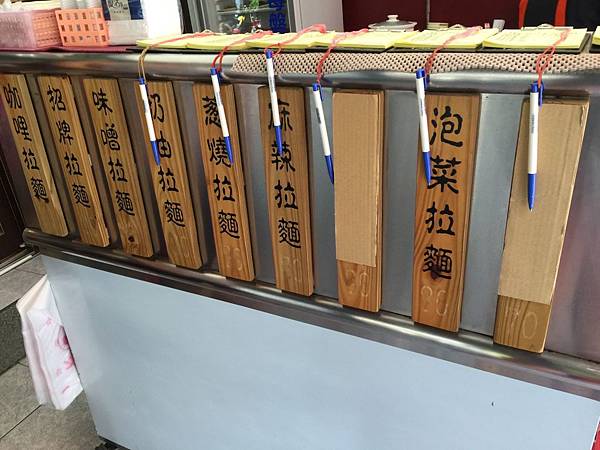 咖哩拉麵
招牌拉麵
味噌拉麵
奶油拉麵
蔥燒拉麵
麻辣拉麵
泡菜拉麵